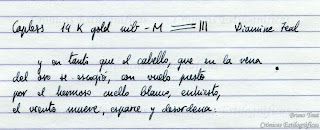 Capless 14 K gold nib - M Diamine Teal
y en tanto que el cabello, que en la vena
del oro se escogió, con vuelo presto
por el hermoso cuello blanco, enhiesto,
el viento mueve, esparce y desordena.
Bruno Taut
Crónicas Estilográficas